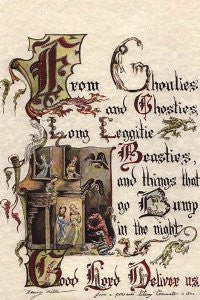 From Ghoulies
and Ghosties
Long Leggitie
Beasties,
and things that
go Bump
in the night
Good Lord Deliver us.